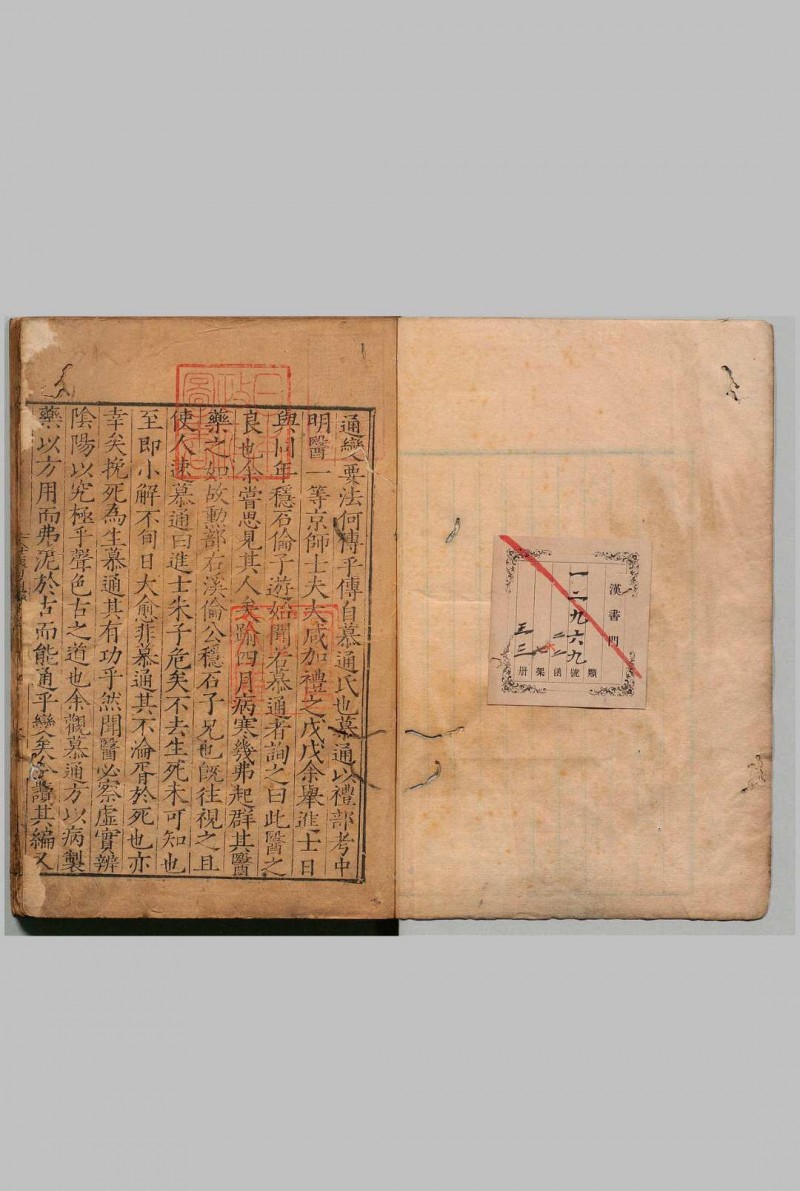 漢書門
一二九六九
三三
類
號
函
架
册
通變要法何傳乎傳自慕通氏也慕通以禮部考中
明醫一等京師士夫夫咸加禮之戊戊余舉進士日
與同年穩石倫子遊始聞若慕通者詢之曰此醫之
良也余嘗思見其人矣踰四月病寒幾弗起群其醫
藥之如故動部右溪倫公穩石子兄也旣往視之且
使人速慕通曰進士朱子危矣不去生死未可知也
至即小解不旬日大愈非慕通其不淪胥於死也亦
幸矣挽死為生慕通其有功乎然聞醫必察虛實辨
陰陽以究極乎聲色古之道也余觀慕通方以病製
藥以方用而弗泥於古而能通乎變矣今讀其編又